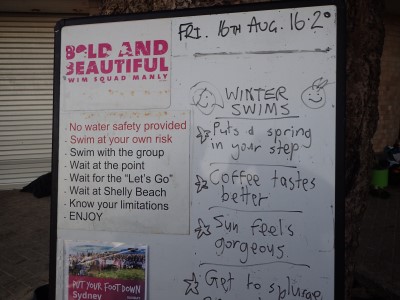 BOLD AND
BEAUTIFUL
SWIM SQUAD MANLY
FRI. 16TH AUG. 16.2°
- No water safety provided
- Swim at your own risk
- Swim with the group
- Wait at the point
- Wait for the "Let's Go"
- Wait at Shelly Beach
- Know your limitations
- ENJOY
WINTER
SWIMS
Puts a spring
in your step
Coffee tastes
better
Sun feels
gorgeous.
Get to splurge
PUT YOUR FOOT DOWN
Sydney